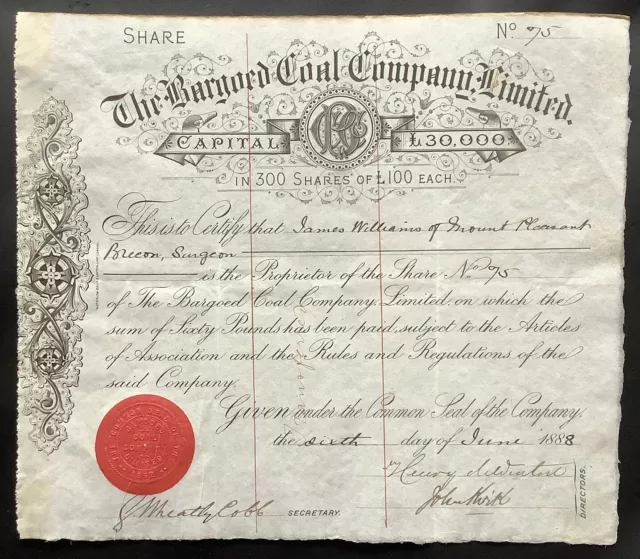 SHARE
No 75
The Bargoed Coal Company, Limited.
CAPITAL £30,000.
IN 300 SHARES OF £100 EACH.
This is to Certify that James Williams of Mount Pleasant
Brecon, Surgeon
is the Proprietor of the Share No 75
of The Bargoed Coal Company, Limited, on which the
sum of Sixty Pounds has been paid, subject to the Articles
of Association and the Rules and Regulations of the
said Company.
Given under the Common Seal of the Company,
the sixth day of June 1888
J Wheatly Cobb
SECRETARY.
DIRECTORS.